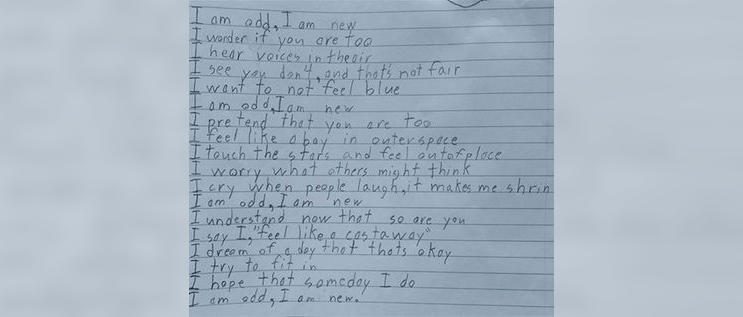 I am odd, I am new
I wonder if you are too
I hear voices in the air
I see you don't, and that's not fair
I want to not feel blue
I am odd, I am new
I pretend that you are too
I feel like a boy in outerspace
I touch the stars and feel out of place
I worry what others might think
I cry when people laugh, it makes me shrin
I am odd, I am new
I understand now that so are you
I say I, "feel like a castaway"
I dream of a day that thats okay
I try to fit in
I hope that someday I do
I am odd, I am new.